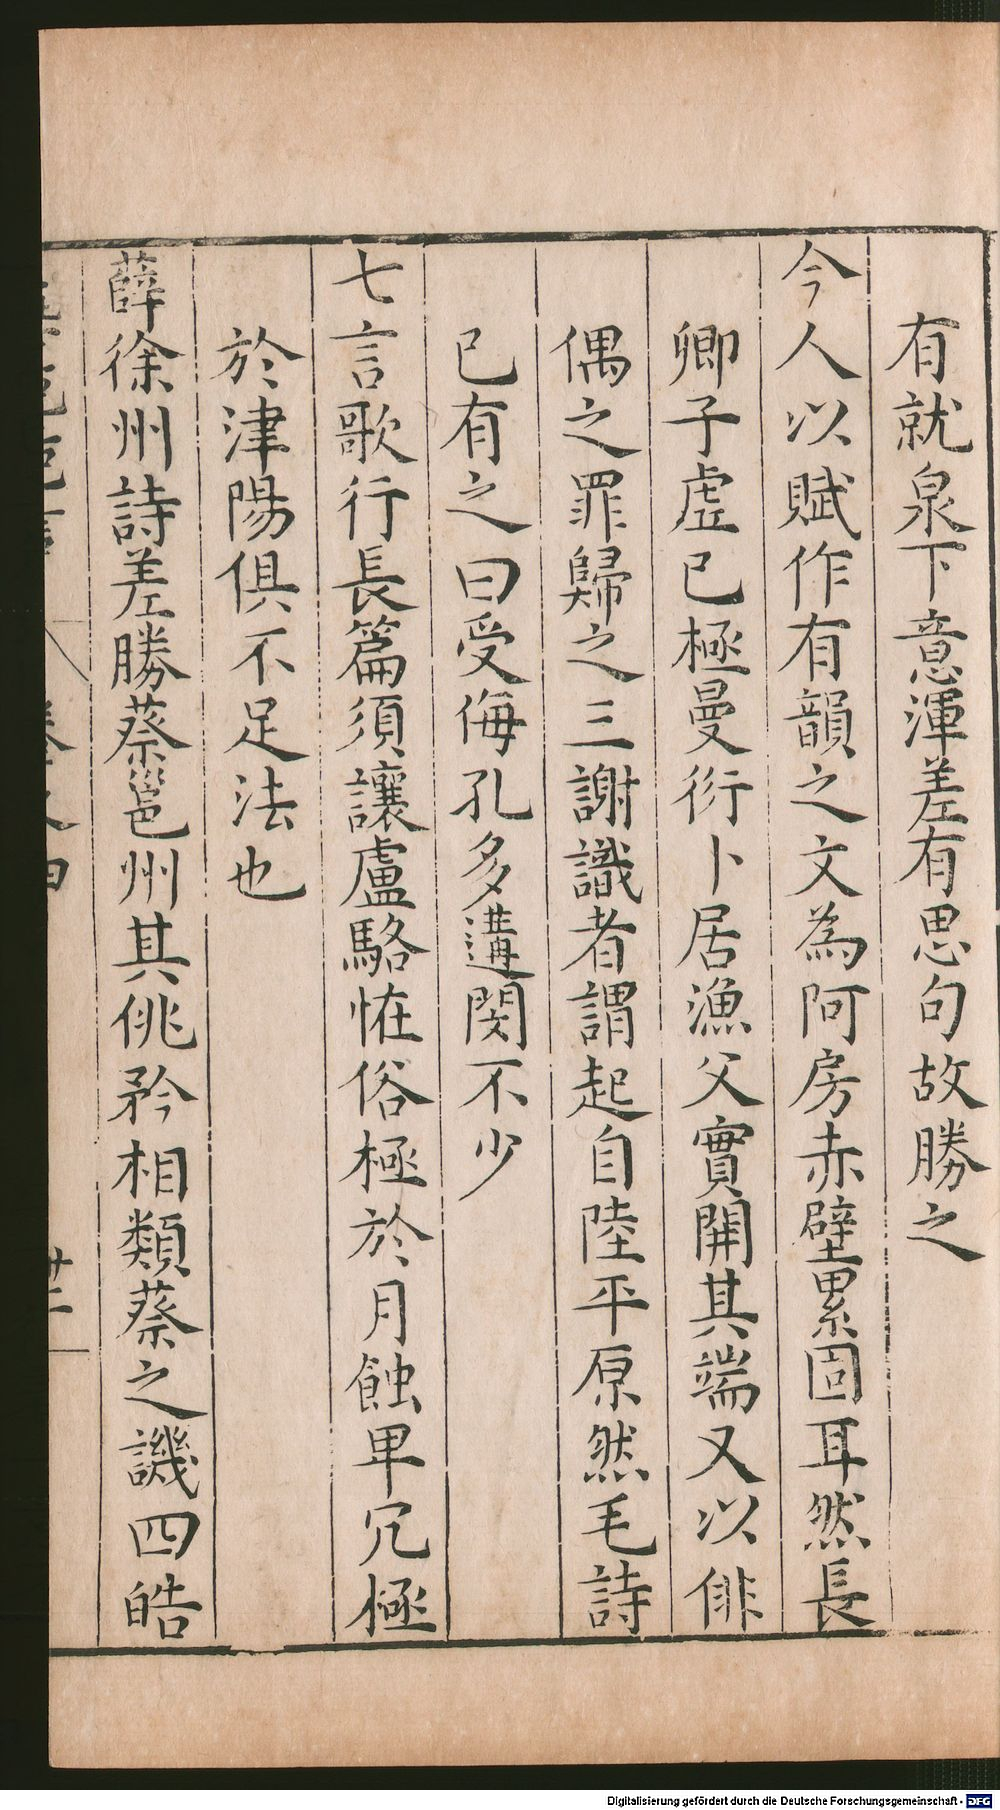 有就泉下意渾差有思句故勝之
今人以賦作有韻之文為阿房赤壁累固耳然長
卿子虛已極曼衍卜居漁父實開其端又以俳
偶之罪歸之三謝識者謂起自陸平原然毛詩
已有之曰受侮孔多遘閔不少
七言歌行長篇須讓盧駱怪俗極於月蝕卑冗極
於津陽俱不足法也
薛徐州詩差勝蔡邕州其佻矜相類蔡之譏四皓
卅二
Digitalisierung gefördert durch die Deutsche Forschungsgemeinschaft - DFG